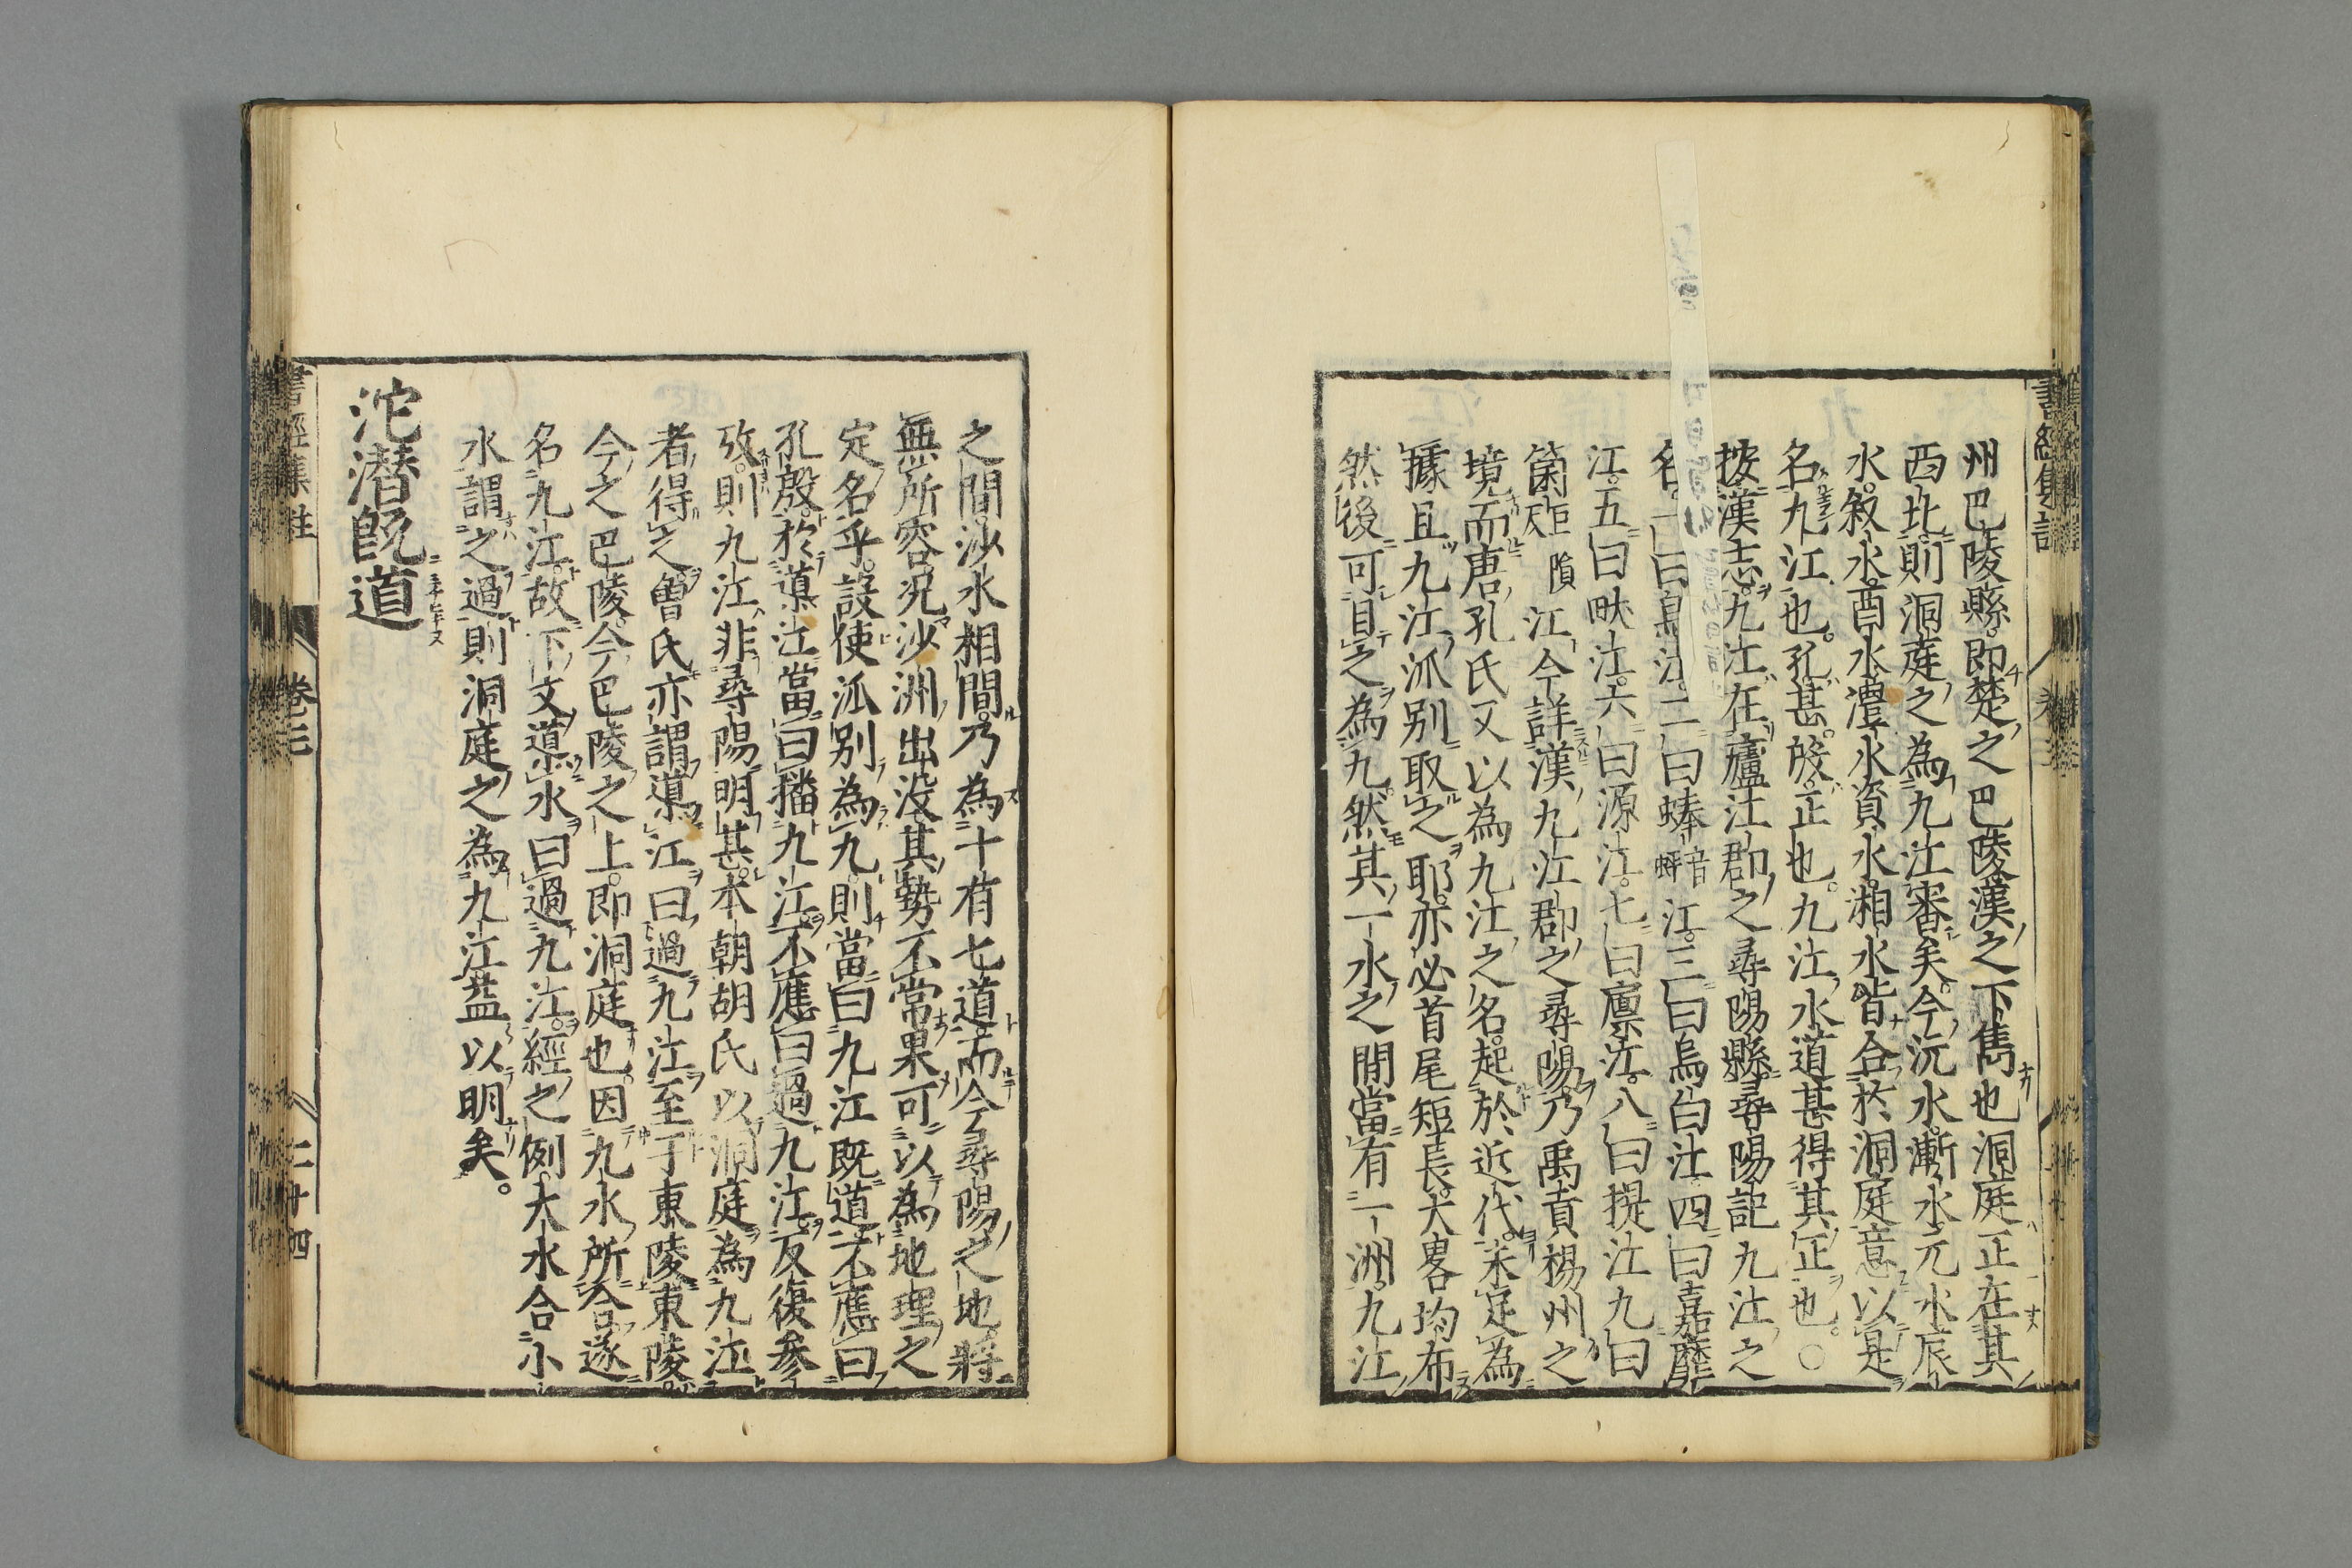 州巴陵縣即楚之巴陵漢之下雋也洞庭正在其
西北則洞庭之為九江審矣今沅水漸水元水辰
水敘水酉水澧水資水湘水皆合於洞庭意以是
名九江也。孔甚。殷正也。九江水道甚得其正也。○
按漢志九江在廬江郡之尋陽縣尋陽記九江之
名一曰烏江。二曰蜯音蚌江。三曰烏白江四曰嘉靡
江。五曰畎江。六曰源江。七曰廩江。八曰提江九曰
箘江今詳漢九江郡之尋陽乃禹貢楊州之
境而唐孔氏又以為九江之名起於近代未足為
據且九江派別取之耶亦必首尾短長大畧均布
然後可目之為九然其一水之間當有一洲九江
之間沙水相間乃為十有七道而今尋陽之地將
無所容況沙洲出沒其勢不常果可以為地理之
定名乎設使派別為九則當曰九江既道不應曰
孔殷於導江當曰播九江不應曰過九江反復參
攷則九江非尋陽明甚本朝胡氏以洞庭為九江
者得之曾氏亦謂導江曰過九江至于東陵東陵
今之巴陵今巴陵之上即洞庭也因九水所合遂
名九江故下文導水曰過九江經之例大水合小
水謂之過則洞庭之為九江益以明矣。
沱潛既道
書經集註
卷三
二十四